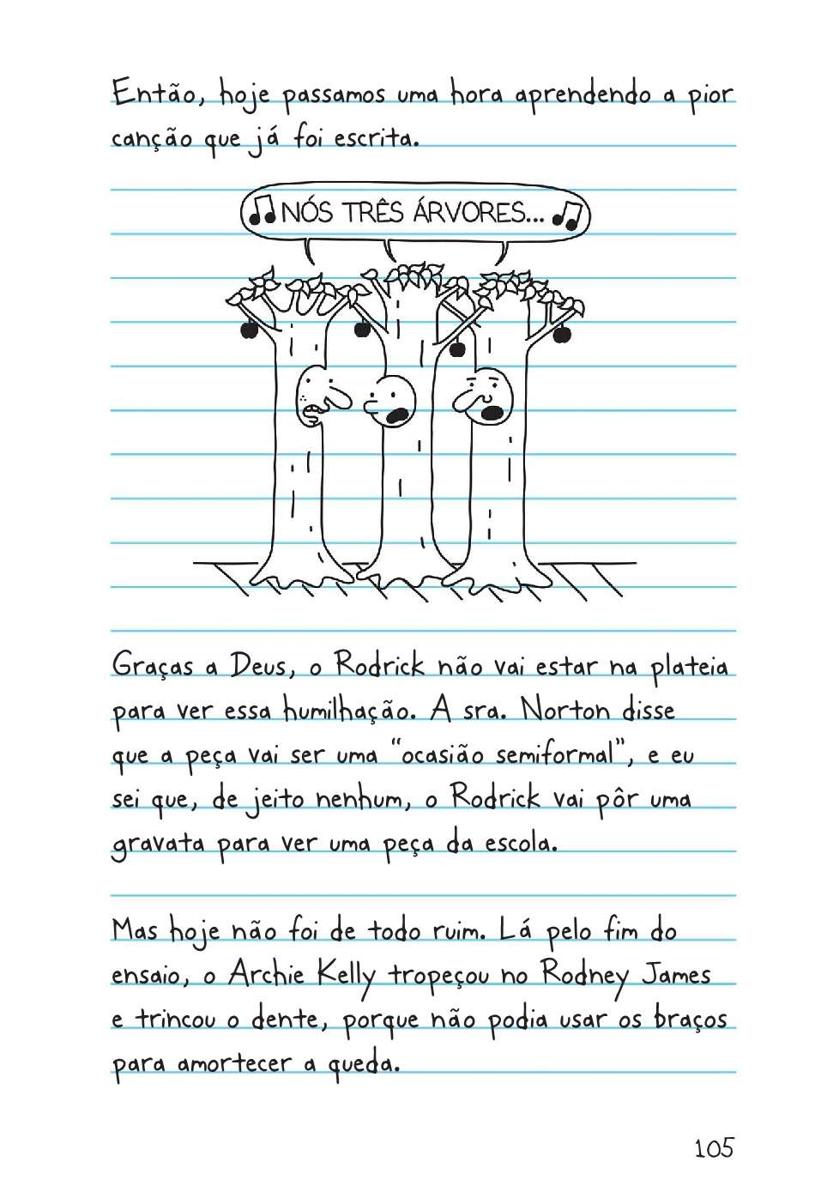 Então, hoje passamos uma hora aprendendo a pior
canção que já foi escrita.
NÓS TRÊS ÁRVORES...
Graças a Deus, o Rodrick não vai estar na plateia
para ver essa humilhação. A sra. Norton disse
que a peça vai ser uma “ocasião semiformal”, e eu
sei que, de jeito nenhum, o Rodrick vai pôr uma
gravata para ver uma peça da escola.
Mas hoje não foi de todo ruim. Lá pelo fim do
ensaio, o Archie Kelly tropeçou no Rodney James
e trincou o dente, porque não podia usar os braços
para amortecer a queda.
105